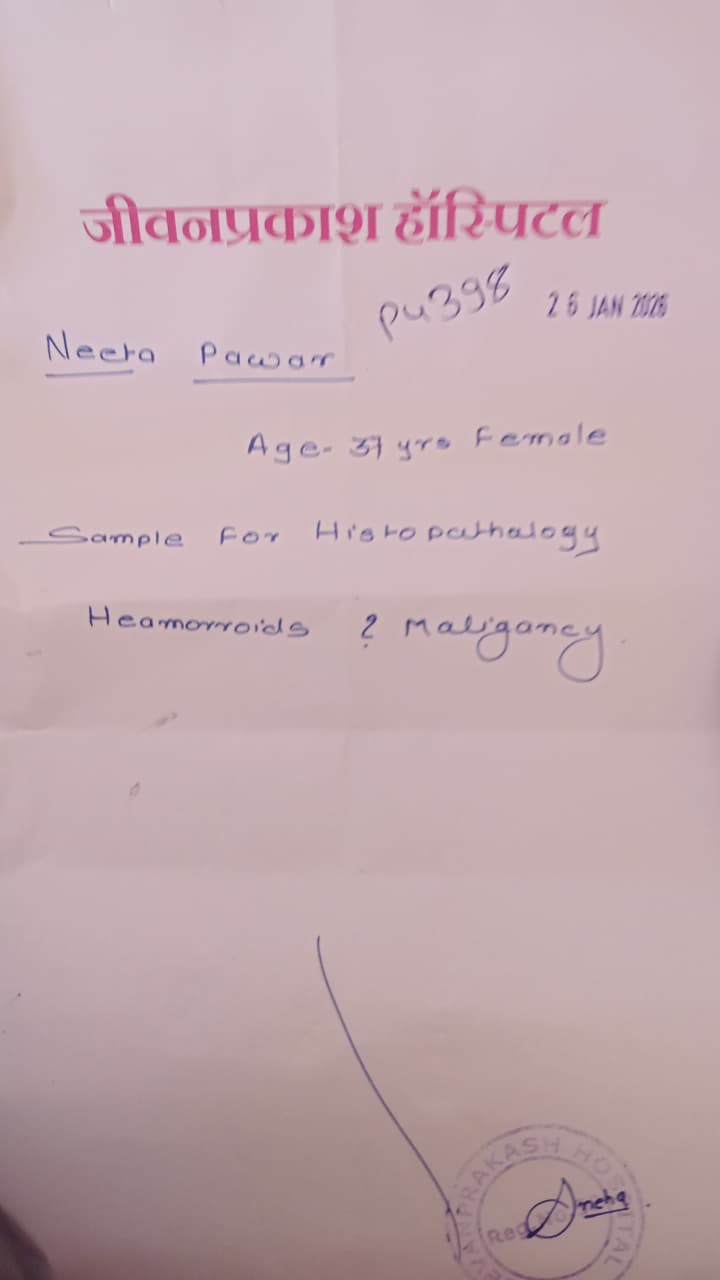 जीवनप्रकाश हॉस्पिटल
PU398 26 JAN 2026
Neeta Pawar
Age- 37 yrs Female
Sample For Histopathalogy
Heamorroids ? Maligancy.
JEEVANPRAKASH HOSPITAL
Reg. No.
Sneha